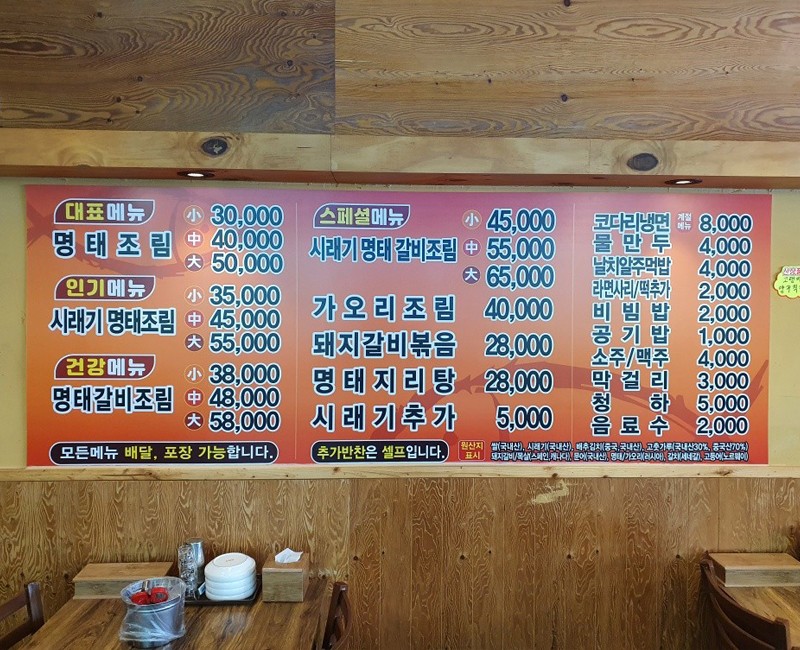 대표메뉴
명태조림
小 30,000
中 40,000
大 50,000
인기메뉴
시래기 명태조림
小 35,000
中 45,000
大 55,000
건강메뉴
명태갈비조림
小 38,000
中 48,000
大 58,000
모든메뉴 배달, 포장 가능합니다.
스페셜메뉴
시래기 명태 갈비조림
小 45,000
中 55,000
大 65,000
가오리조림 40,000
돼지갈비볶음 28,000
명태지리탕 28,000
시래기추가 5,000
추가반찬은 셀프입니다.
코다리냉면 계절메뉴 8,000
물만두 4,000
날치알주먹밥 4,000
라면사리/떡추가 2,000
비빔밥 2,000
공기밥 1,000
소주/맥주 4,000
막걸리 3,000
청하 5,000
음료수 2,000
원산지 표시
쌀(국내산), 시래기(국내산), 배추김치(중국, 국내산), 고춧가루(국내산30%, 중국산70%)
돼지갈비/목살(스페인,캐나다), 문어(국내산), 명태/가오리(러시아), 갈치(세네갈), 고등어(노르웨이)